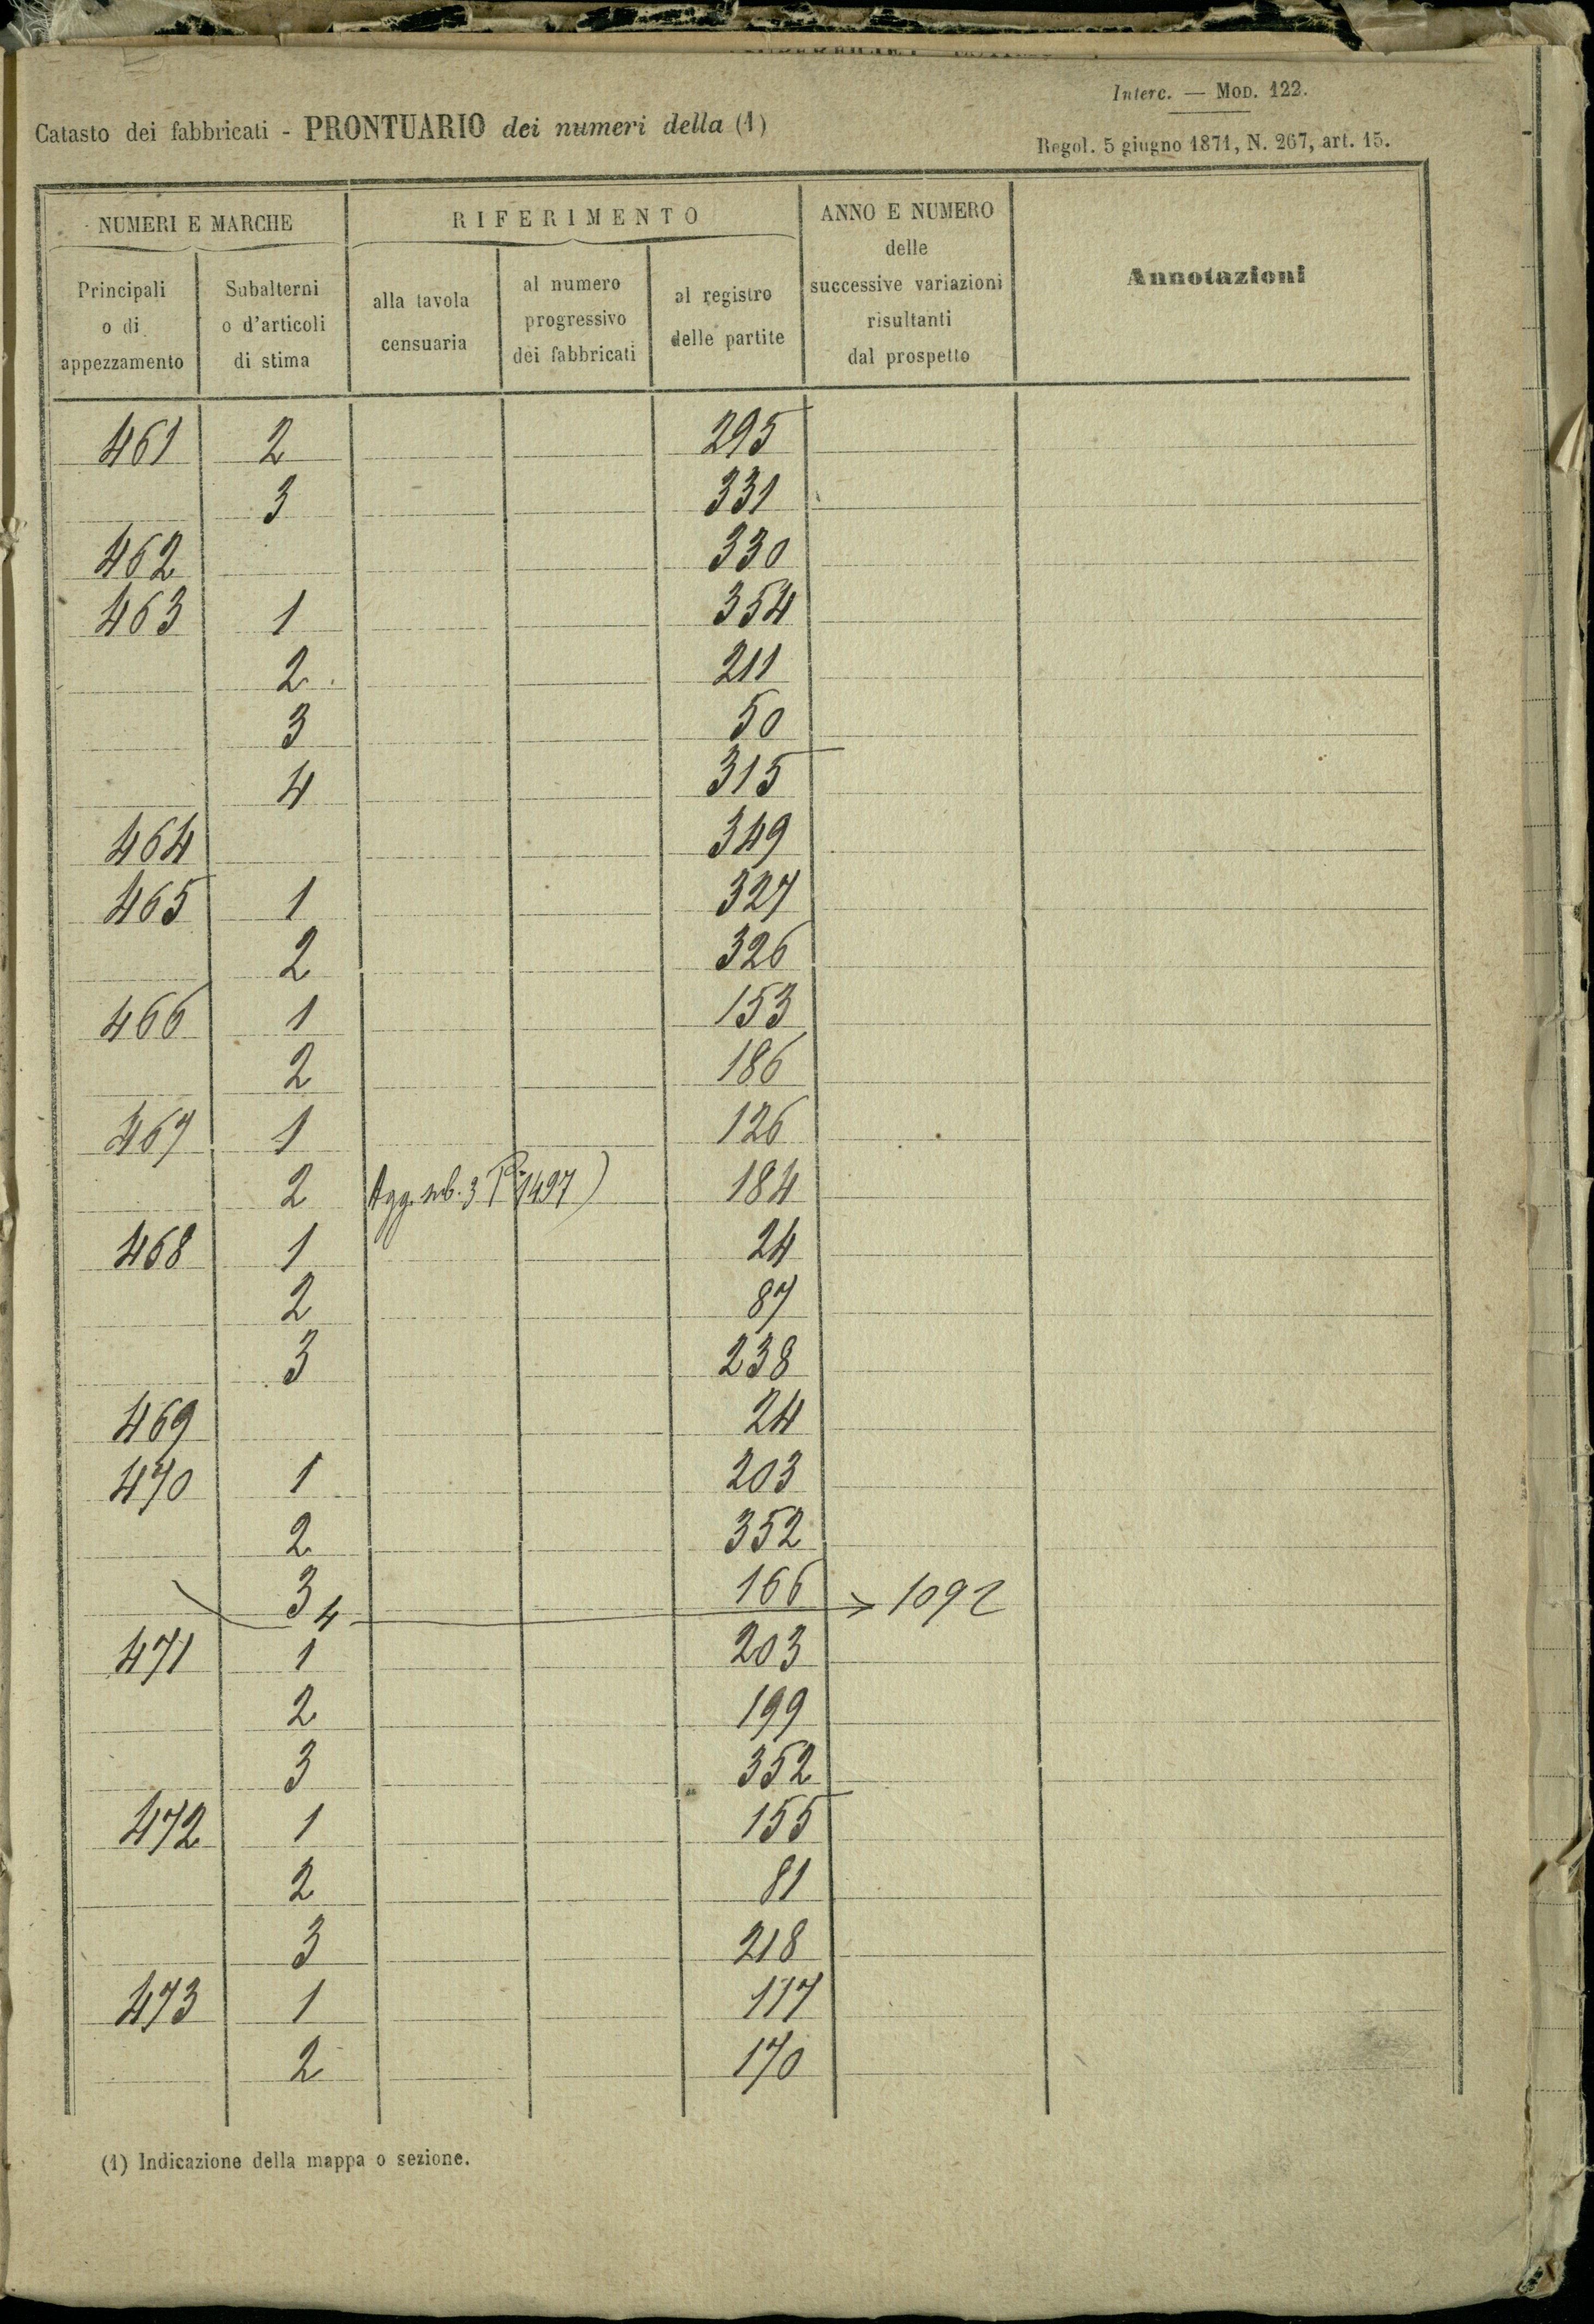 Interc. — MOD. 122.
Catasto dei fabbricati - PRONTUARIO dei numeri della (1)
Regol. 5 giugno 1871, N. 267, art. 15.
NUMERI E MARCHE
RIFERIMENTO
ANNO E NUMERO
delle
successive variazioni
risultanti
dal prospetto
Annotazioni
Principali
o di
appezzamento
Subalterni
o d'articoli
di stima
alla tavola
censuaria
al numero
progressivo
dei fabbricati
al registro
delle partite
461 2 295
3 331
462 330
463 1 354
2 211
3 50
4 315
464 349
465 1 327
2 326
466 1 153
2 186
467 1 126
2 Agg. sub. 3 P. 1497) 184
468 1 24
2 87
3 238
469 24
470 1 203
2 352
3 166
4 1092
471 1 203
2 199
3 352
472 1 155
2 81
3 218
473 1 117
2 170
(1) Indicazione della mappa o sezione.